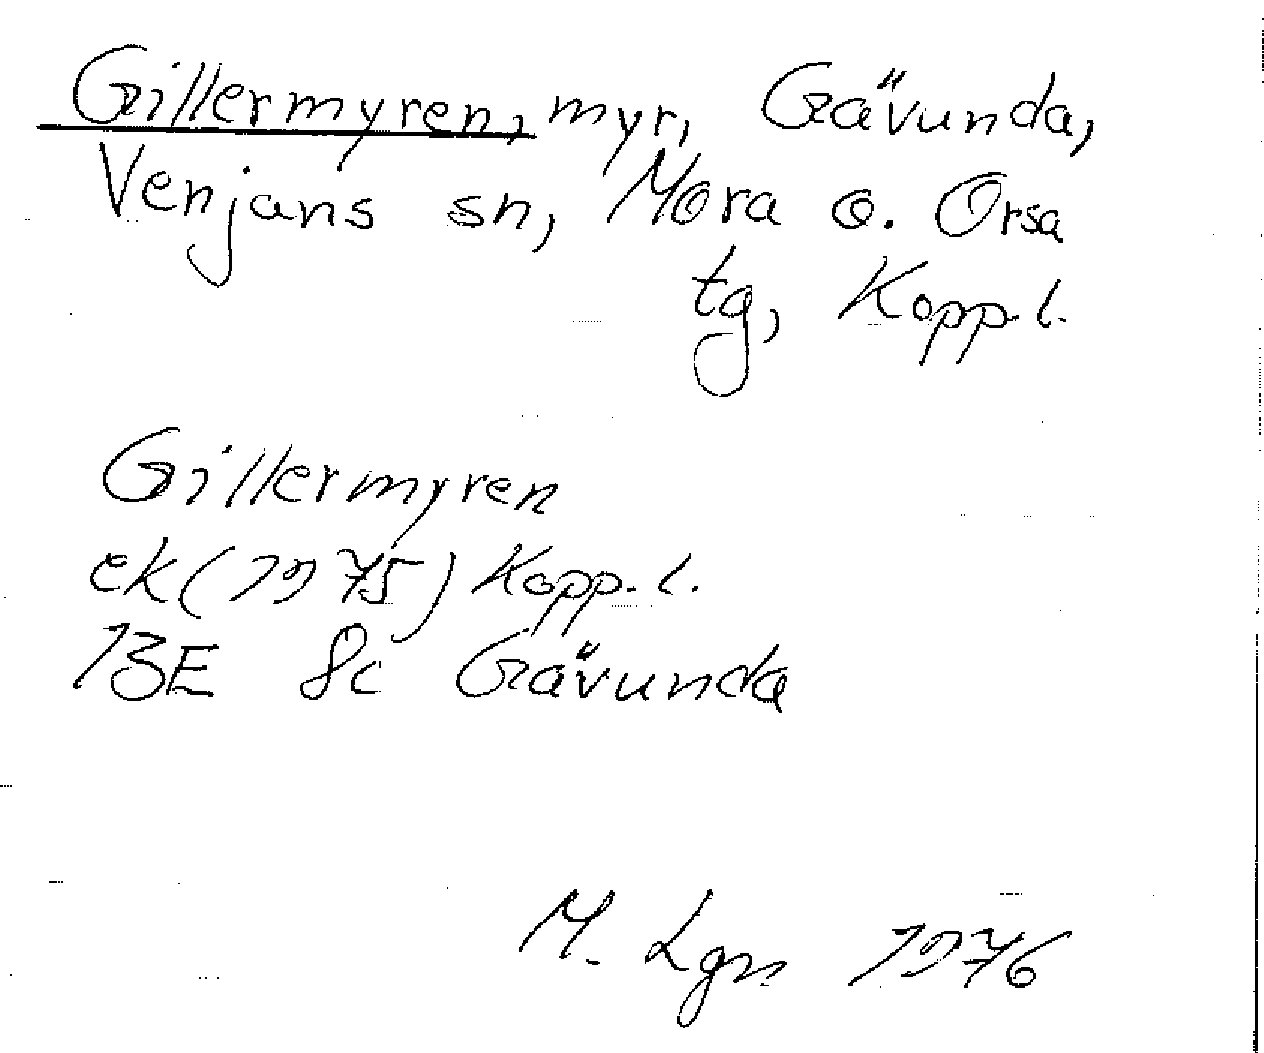 Gillermyren, myr, Gävunda,
Venjans sn, Mora o. Orsa
tg, Kopp. l.
Gillermyren
ek (1975) Kopp. l.
13E 8c Gävunda
M. Lgn 1976